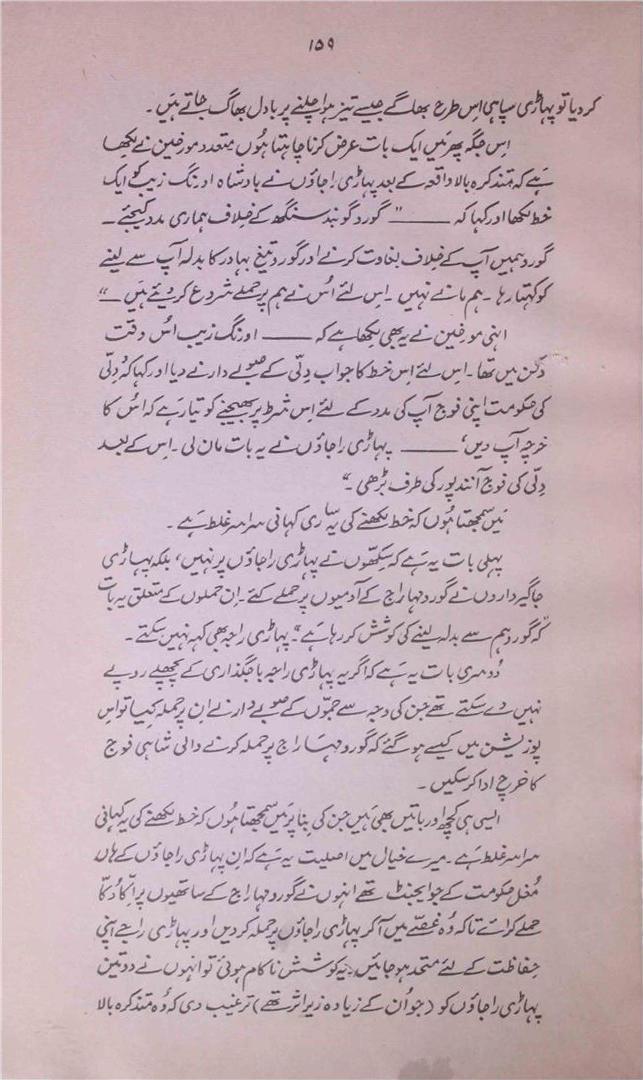 ۱۵۹
کر دیا تو پہاڑی سپاہی اِس طرح بھاگے جیسے تیز ہوا چلنے پر بادل بھاگ جاتے ہَیں۔
اِس جگہ پھر مَیں ایک بات عرض کرنا چاہتا ہُوں متعدد مورخین نے لکھا
ہَے کہ متذکرہ بالا واقعہ کے بعد پہاڑی راجاؤں نے بادشاہ اورنگ زیب کو ایک
خط لکھا اور کہا کہ ــــــــ "گورو گوبند سنگھ کے خلاف ہماری مدد کیجئے۔
گورو ہمیں آپ کے خلاف بغاوت کرنے اور گورو تیغ بہادر کا بدلہ آپ سے لینے
کو کہتا رہا۔ ہم مانے نہیں۔ اِس لئے اُس نے ہم پر حملے شروع کر دیئے ہَیں۔"
اِنہی مورخین نے یہ بھی لکھا ہے کہ ــــــــ اورنگ زیب اُس وقت
دکن میں تھا۔ اس لئے اِس خط کا جواب دِلّی کے صوبے دار نے دیا اور کہا کہ دِلّی
کی حکومت اپنی فوج آپ کی مدد کے لئے اس شرط پر بھیجنے کو تیار ہے کہ اُس کا
خرچہ آپ دیں، ــــــــ پہاڑی راجاؤں نے یہ بات مان لی۔ اِس کے بعد
دِلّی کی فوج آنند پور کی طرف بڑھی۔"
مَیں سمجھتا ہُوں کہ خط لکھنے کی یہ ساری کہانی سراسر غلط ہے۔
پہلی بات یہ ہَے کہ سِکھوں نے پہاڑی راجاؤں پر نہیں، بلکہ پہاڑی
جاگیرداروں نے گورو مہاراج کے آدمیوں پر حملے کئے۔ اِن حملوں کے متعلق یہ بات
"کہ گورو ہم سے بدلہ لینے کی کوشش کر رہا ہے"۔ پہاڑی راجہ بھی کہہ نہیں سکتے۔
دُوسری بات یہ ہَے کہ اگر یہ پہاڑی راجہ باجگذاری کے پچھلے روپے
نہیں دے سکتے تھے جن کی وجہ سے جموں کے صوبے دار نے اِن پر حملہ کیا تو اِس
پوزیشن میں کیسے ہو گئے کہ گورو مہاراج پر حملہ کرنے والی شاہی فوج
کا خرچ ادا کر سکیں۔
ایسی ہی کچھ اور باتیں بھی ہَیں جن کی بنا پر مَیں سمجھتا ہُوں کہ خط لکھنے کی یہ کہانی
سراسر غلط ہے۔ میرے خیال میں اصلیت یہ ہَے کہ اِن پہاڑی راجاؤں کے ہاں
مُغل حکومت کے جو ایجنٹ تھے اُنہوں نے گورو مہاراج کے ساتھیوں پر اکّا دُکّا
حملے کرائے تاکہ وُہ غصّے میں آ کر پہاڑی راجاؤں پر حملہ کر دیں اور پہاڑی راجے اپنی
حفاظت کے لئے متحد ہو جائیں۔ یہ کوشش ناکام ہوئی تو انہوں نے دو تین
پہاڑی راجاؤں کو (جو اُن کے زیادہ زیرِ اثر تھے) ترغیب دی کہ وُہ متذکرہ بالا